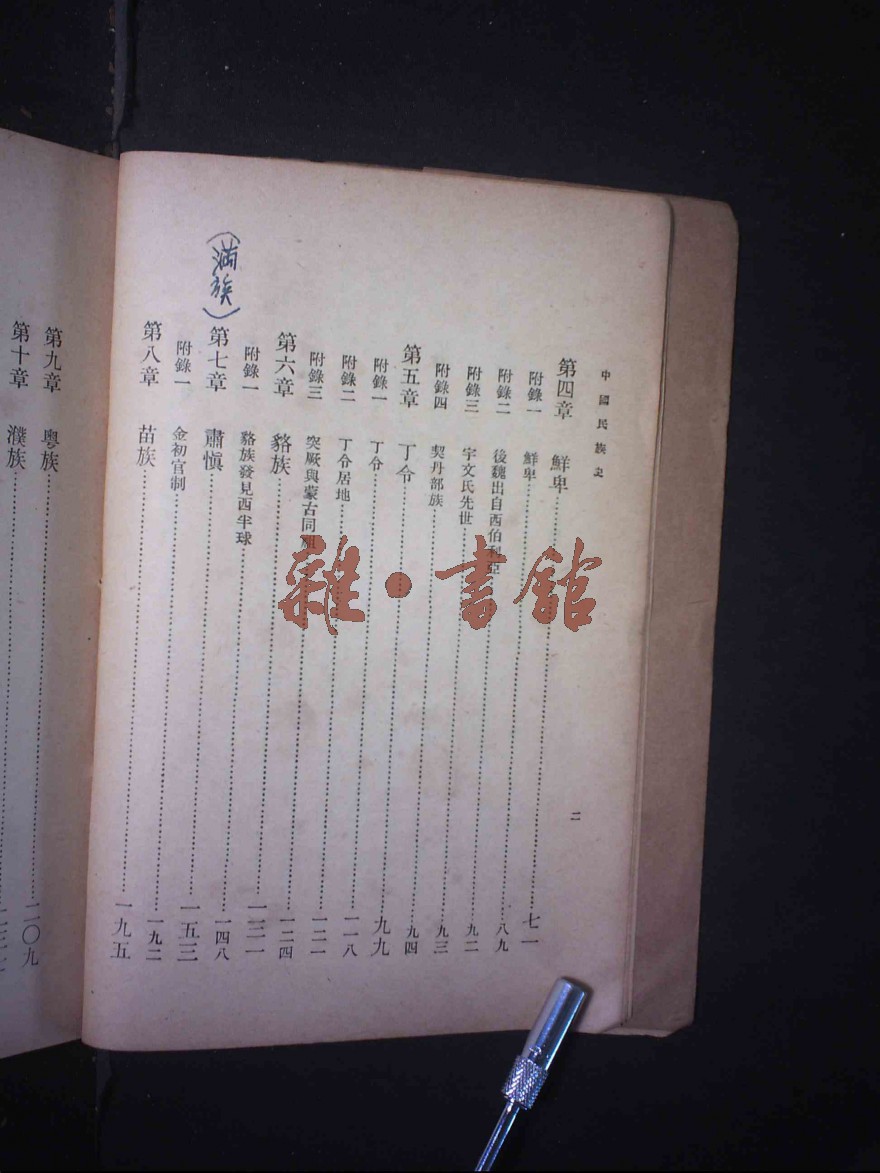 中國民族史
二
第四章 鮮卑……七一
附錄一 鮮卑……八九
附錄二 後魏出自西伯利亞……九二
附錄三 宇文氏先世……九三
附錄四 契丹部族……九四
第五章 丁令……九九
附錄一 丁令……一一八
附錄二 丁令居地……一二一
附錄三 突厥與蒙古同祖……一二四
第六章 貉族……一三一
附錄一 貉族發見西半球……一四八
(滿族)
第七章 肅慎……一五三
附錄一 金初官制……一九二
第八章 苗族……一九五
第九章 粵族……二〇九
第十章 濮族……
雜·書館